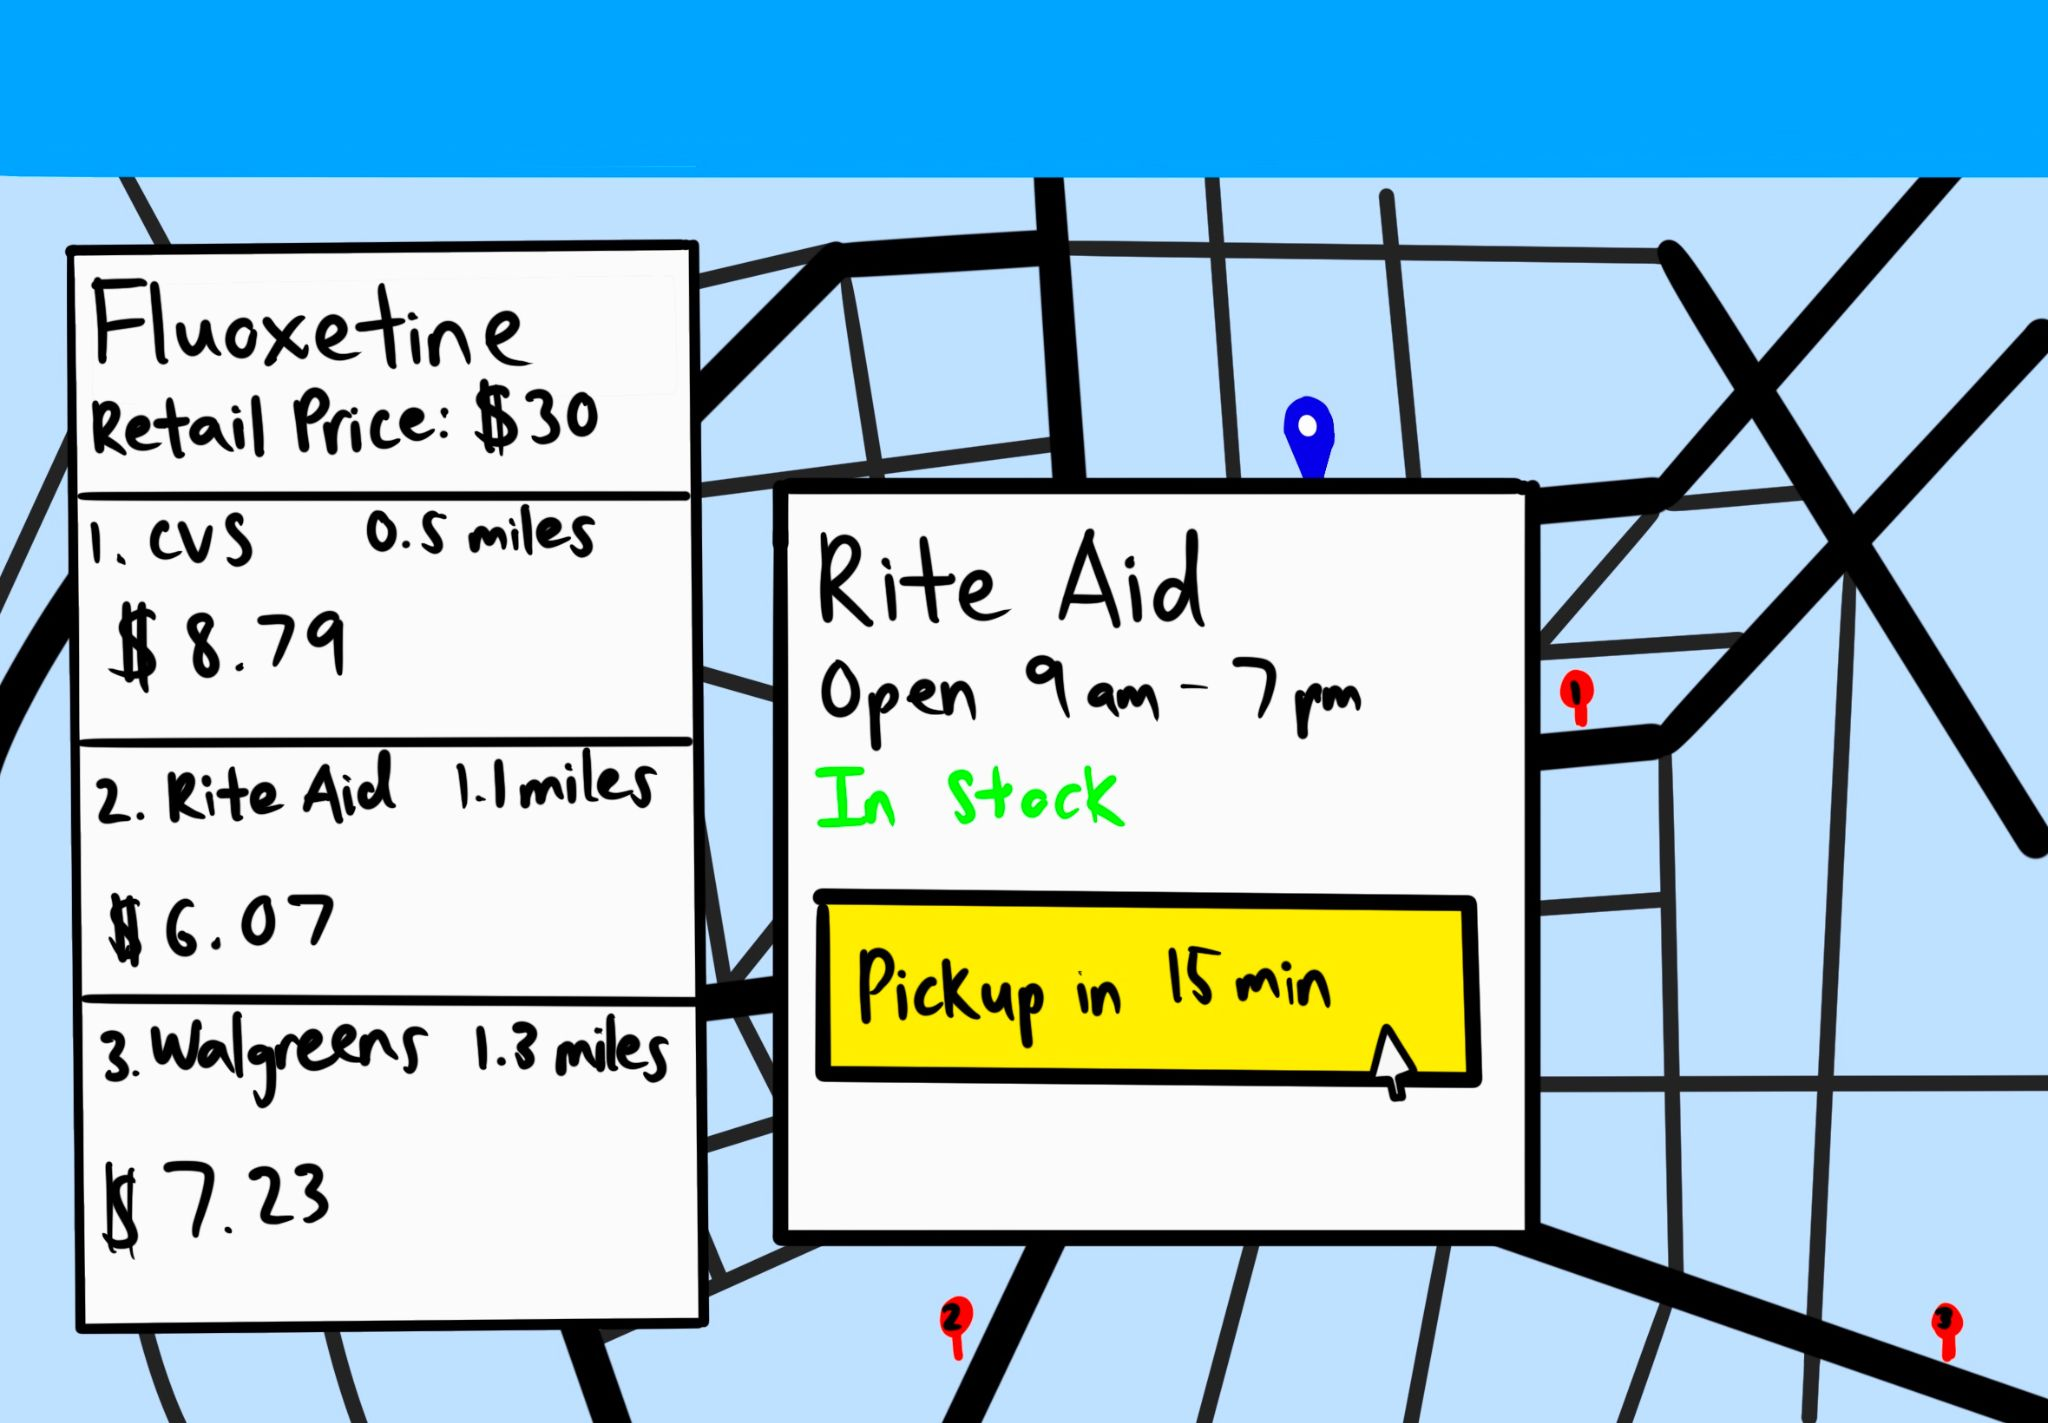 Fluoxetine
Retail Price: $30
1. CVS 0.5 miles
$8.79
2. Rite Aid 1.1 miles
$6.07
3. Walgreens 1.3 miles
$7.23
Rite Aid
Open 9am - 7pm
In Stock
Pickup in 15 min
1
2
3